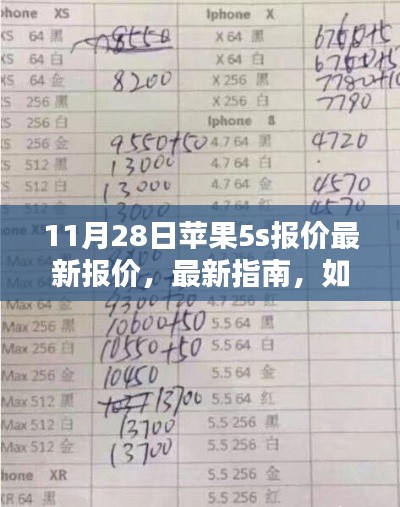 Iphone XS Iphone X
XS 64 黑 8550 X 64 黑 6760+5
XS 64 白 X 64 白 6760+5
XS 64 金 8200 X 256 黑 7780+10
XS 256 黑 X 256 白 7790
XS 256 白 Iphone 8
XS 256 金 9550+50 4.7 64 黑 4720
XS 512 黑 13000 4.7 64 白
XS 512 白 13000 4.7 64 金 4570
13000 4.7 64 红 4570
11月28日苹果5s报价最
新报价，最新指南，如
Max 64 金 9300+50
Max 256 黑 10600+50 5.5 64 金
Max 256 白 10550+50 5.5 64 红
Max 256 金 10450
Max 512 黑 13700 5.5 64 红
Max 512 白 13700 5.5 256 黑
Max 512 金 13700 5.5 256 白
Iphone XR 5.5 256 金
XR 64 黑 5.5 256 红